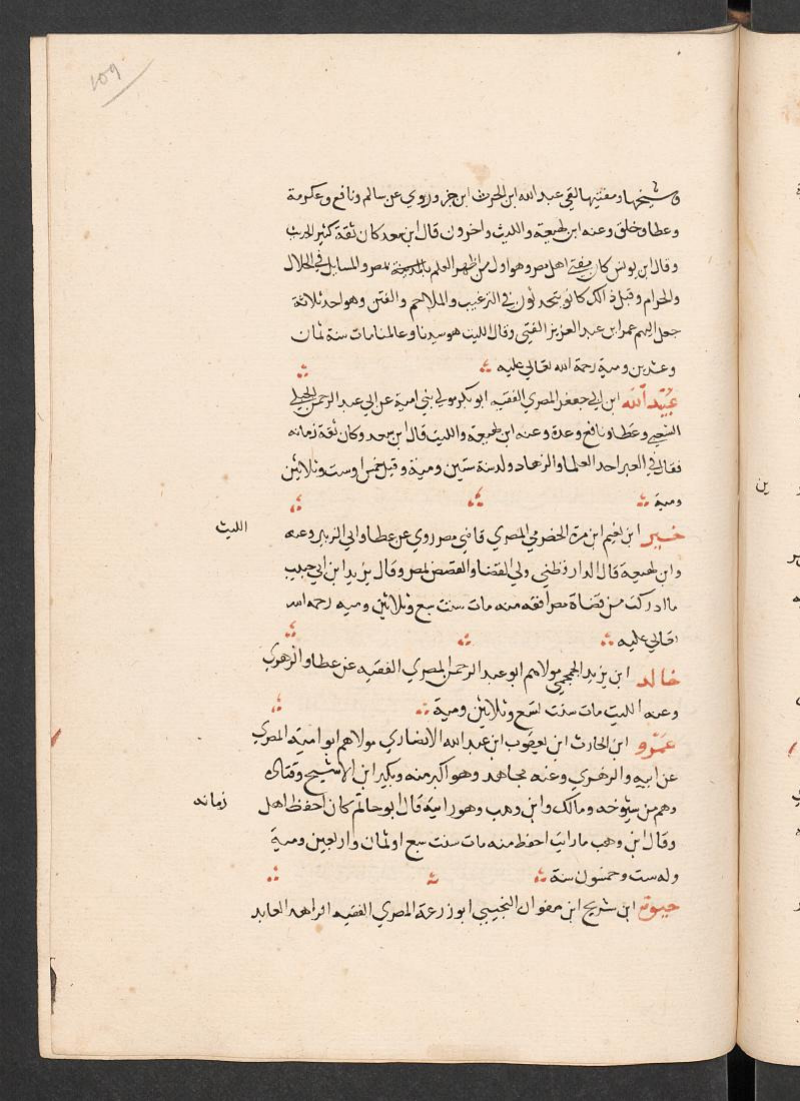 109
وشيخها ومفتيها لقي عبد الله ابن الحرث ابن جزو روي عن سالم ونافع وعكرمة
وعطا وخلق وعنه ابن لهيعة والليث واخرون قال ابن سعد كان ثقة كثير الحديث
وقال ابن يونس كان مفتي اهل مصر وهو اول من اظهر العلم بمصر والمسايل في الحلال
والحرام وقبل ذلك كانو يتحدثون في الترغيب والملاحم والفتن وهو احد ثلاثة
جعل اليهم عمر ابن عبد العزيز الفتي وقال الليث هو سيدنا وعالمنا مات سنة ثمان
وعشرين ومية رحمة الله تعالي عليه
عبيد الله ابن ابي جعفر المصري الفقيه ابو بكر مولي بني امية عن ابي عبد الرحمن الحبلي
الشعبي وعطا ونافع وعدة وعنه ابن لهيعة والليث قال ابن سعد وكان ثقة زمانه
فقال في العبر احد العلما والزهاد ولد سنة ستين ومية وقيل خمس او ست وثلاثين
ومية
خير ابن نعيم ابن مرة الحضرمي المصري قاضي مصر روي عن عطا وابي الزبير وعنه الليث
وابن لهيعة قال الدارقطني ولي القضا والقصص بمصر وقال يزيد ابن ابي حبيب
ما ادركت من قضاة مصر افقه منه مات سنت سبع وثلاثين وميه رحمه الله
تعالي عليه
خالد ابن يزيد الجمحي مولاهم ابو عبد الرحمن المصري الفقيه عن عطا والزهري
وعنه الليث مات سنت تسع وثلاثين ومية
عمرو ابن الحارث ابن يعقوب ابن عبد الله الانصاري مولاهم ابو اميه المصري
عن ابيه والزهري وعنه مجاهد وهو اكبر منه وبكير ابن الاشج وقتاده
وهم من شيوخه ومالك وابن وهب وهو راسه قال ابو حاتم كان احفظ اهل زمانه
وقال ابن وهب ما رايت احفظ منه مات سنت سبع او ثمان واربعين ومية
وله ست وخمسون سنة
حيوة ابن شريح ابن صفوان التجيبي ابو زرعة المصري الفقيه الزاهد العابد